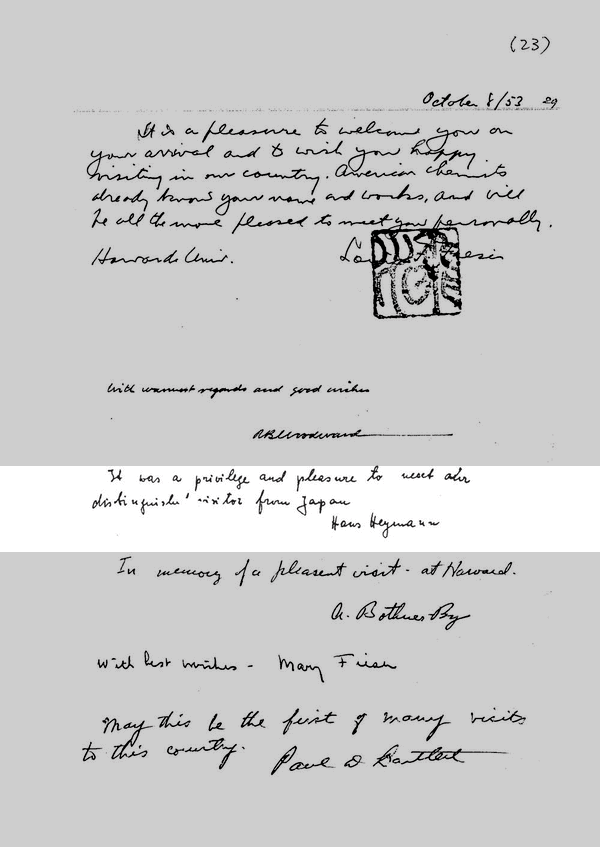 (23)
October 8/53 29
It is a pleasure to welcome you on
your arrival and to wish you happy
visiting in our country. American chemists
already know your name and works, and will
be all the more pleased to meet you personally.
Harvard Univ. Fieser
With warmest regards and good wishes
RBWoodward
It was a privilege and pleasure to meet our
distinguishe' visitor from Japan
Hans Heymann
In memory of a pleasent visit - at Harvard.
A. Bothner By
With best wishes - Mary Fieser
May this be the first of many visits
to this country. Paul D Bartlett